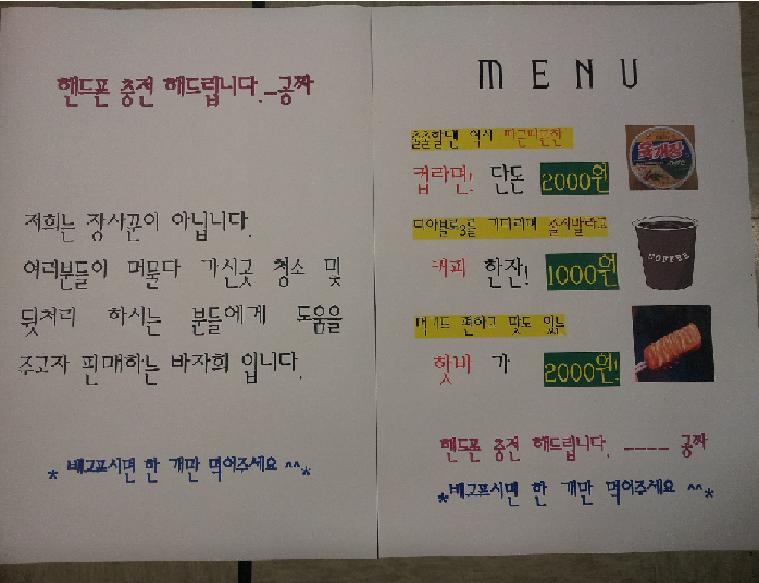 핸드폰 충전 해드립니다.-공짜
저희는 장사꾼이 아닙니다.
여러분들이 머물다 가신곳 청소 및
뒷처리 하시는 분들에게 도움을
주고자 판매하는 바자회 입니다.
* 배고프시면 한 개만 먹어주세요 ^^*
MENU
출출할땐 역시 따끈따끈한
컵라면! 단돈 2000원
육개장
디아블로3를 기다리며 졸지말라고
커피 한잔! 1000원
COFFEE
먹기도 편하고 맛도 있는
핫바 가 2000원!
핸드폰 충전 해드립니다. ---- 공짜
*배고프시면 한 개만 먹어주세요 ^^*